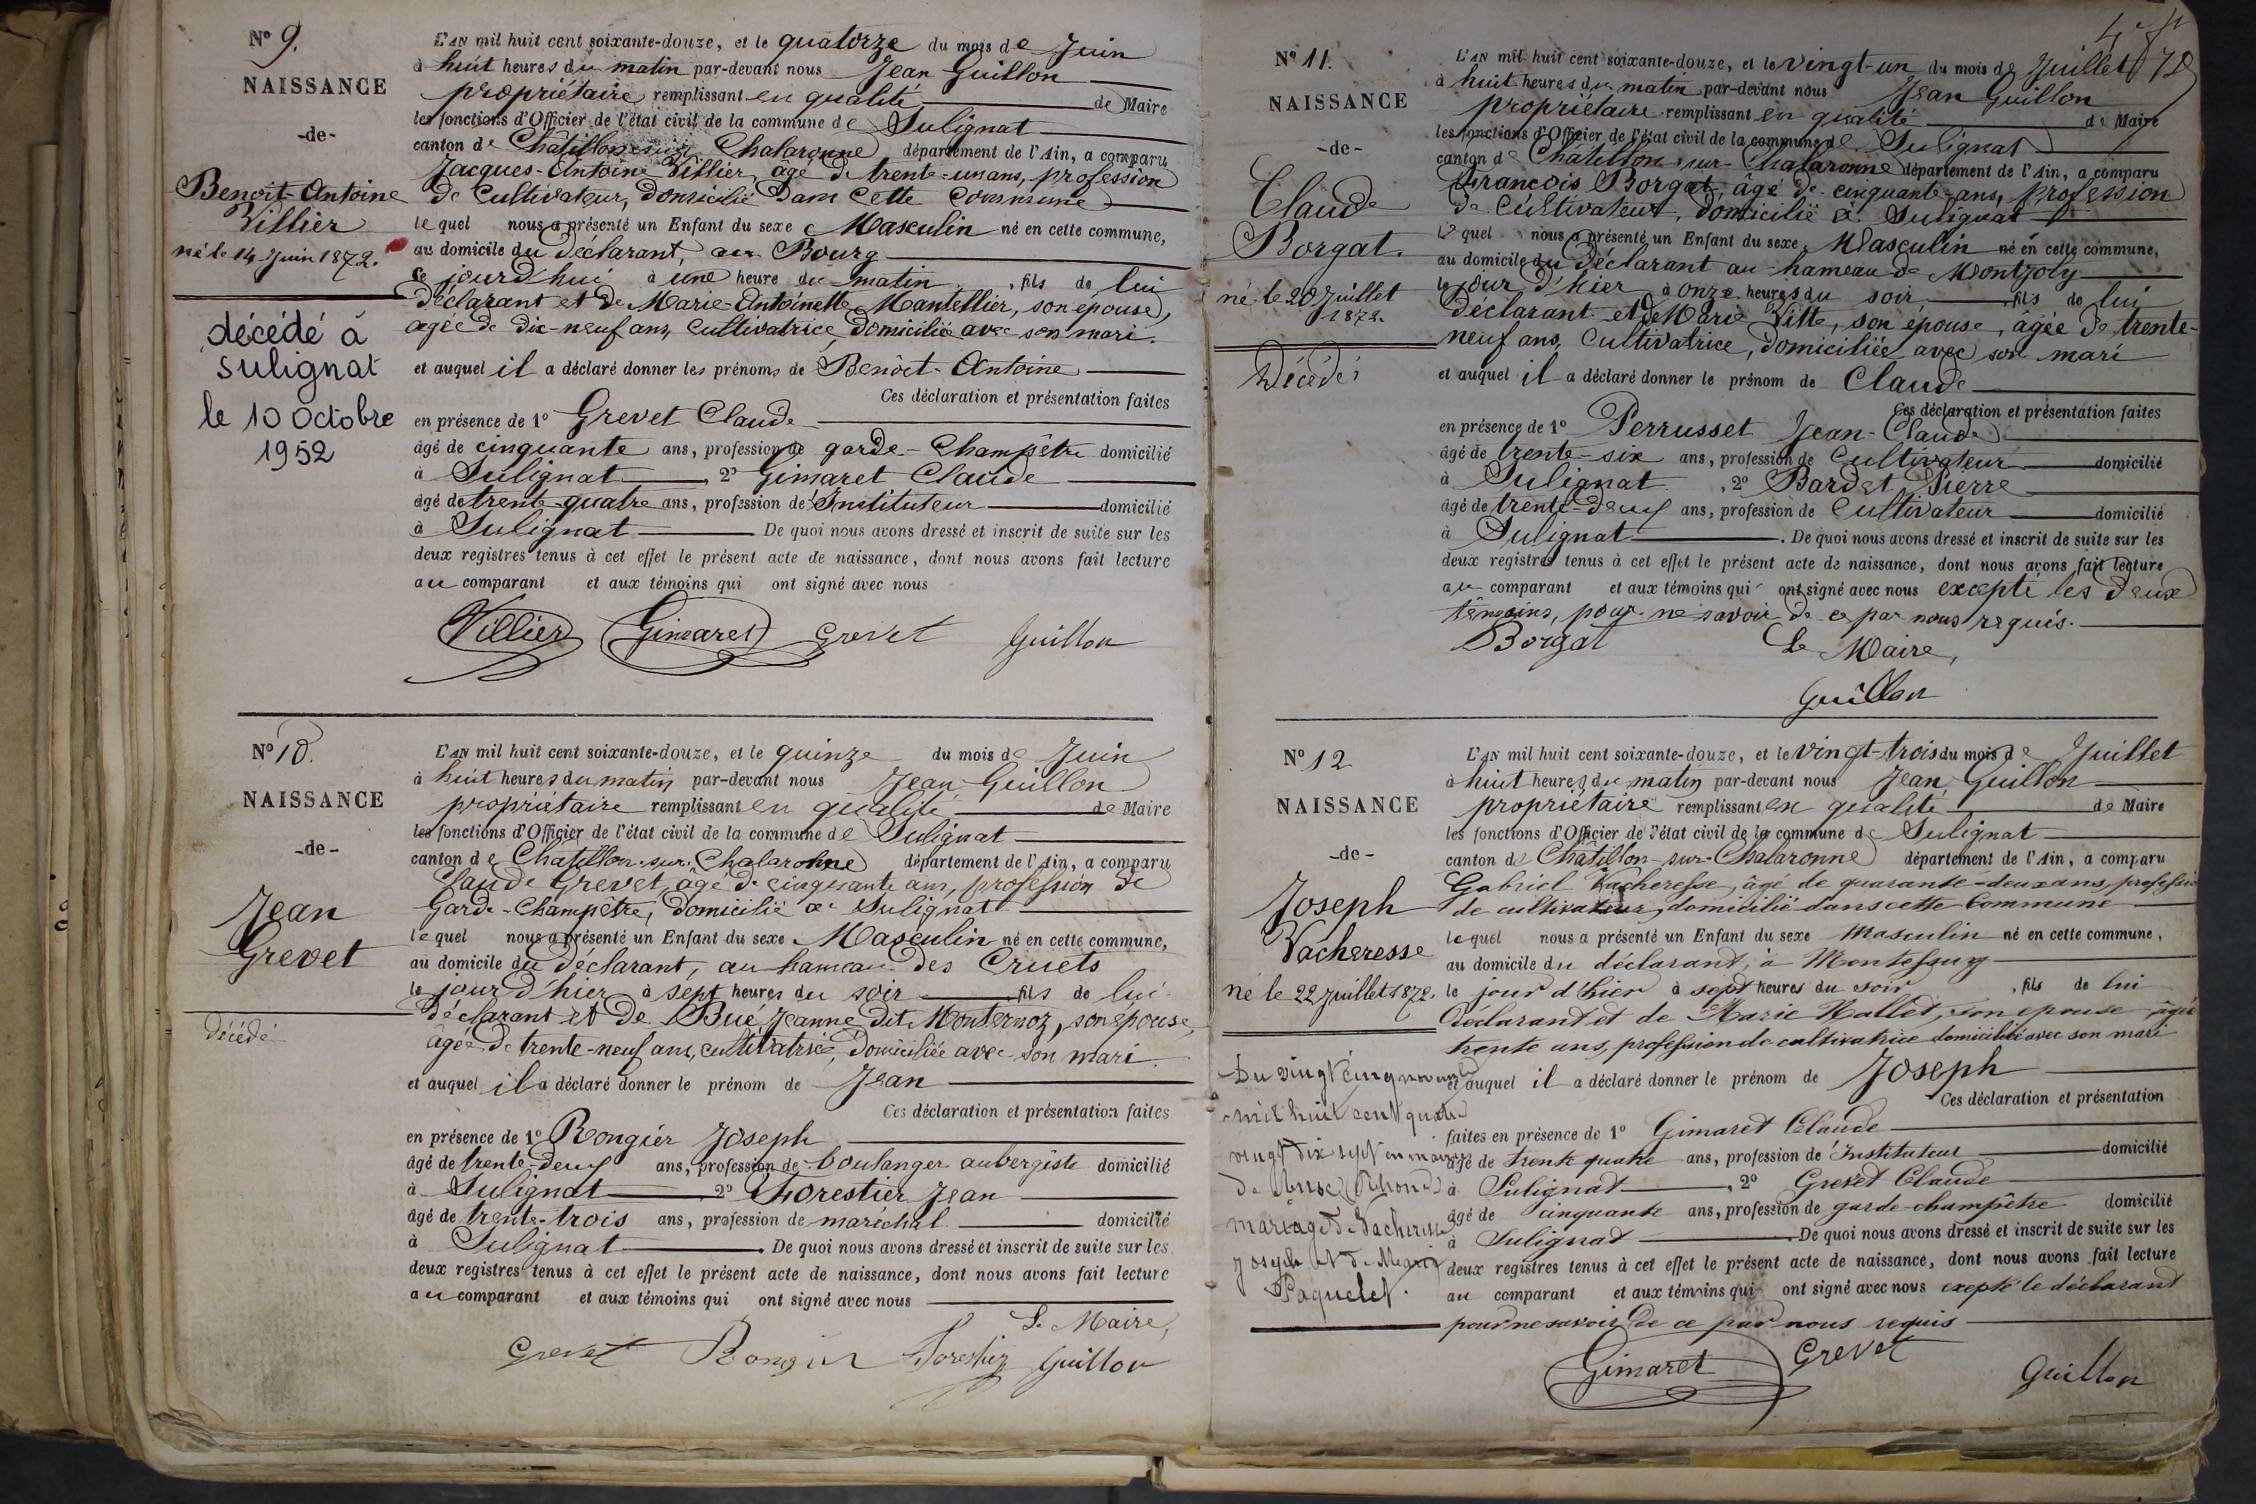 N° 9.
NAISSANCE
-de-
Benoit-Antoine
Villier
né le 14 Juin 1872.
décédé à
Sulignat
le 10 Octobre
1952
L'AN mil huit cent soixante-douze, et le quatorze du mois de Juin
à huit heures du matin par-devant nous Jean Guillon
propriétaire remplissant en qualité de Maire
les fonctions d'Officier de l'état civil de la commune de Sulignat
canton de Châtillon-sur-Chalaronne département de l'Ain, a comparu
Jacques-Antoine Villier, âgé de trente-un ans, profession
de cultivateur, domicilié dans cette commune
lequel nous a présenté un Enfant du sexe Masculin né en cette commune,
au domicile du déclarant, au Bourg
ce jourd'hui à une heure du matin, fils de lui
déclarant et de Marie-Antoinette Mantellier, son épouse,
âgée de dix-neuf ans, cultivatrice, domiciliée avec son mari.
et auquel il a déclaré donner les prénoms de Benoît-Antoine
Ces déclaration et présentation faites
en présence de 1° Grevet Claude
âgé de cinquante ans, profession de garde-Champêtre domicilié
à Sulignat, 2° Gimaret Claude
âgé de trente-quatre ans, profession de Instituteur domicilié
à Sulignat De quoi nous avons dressé et inscrit de suite sur les
deux registres tenus à cet effet le présent acte de naissance, dont nous avons fait lecture
au comparant et aux témoins qui ont signé avec nous
Villier Gimaret Grevet Guillon
N° 10.
NAISSANCE
-de-
Jean
Grevet
décédé
L'AN mil huit cent soixante-douze, et le quinze du mois de Juin
à huit heures du matin par-devant nous Jean Guillon
propriétaire remplissant en qualité de Maire
les fonctions d'Officier de l'état civil de la commune de Sulignat
canton de Châtillon-sur-Chalaronne département de l'Ain, a comparu
Claude Grevet, âgé de cinquante ans, profession de
Garde-Champêtre, domicilié à Sulignat
lequel nous a présenté un Enfant du sexe Masculin né en cette commune,
au domicile du déclarant, au hameau des Cruets
le jour d'hier à sept heures du soir fils de lui
déclarant et de Bué Jeanne dit Monternoz, son épouse,
âgée de trente-neuf ans, cultivatrice, domiciliée avec son mari.
et auquel il a déclaré donner le prénom de Jean
Ces déclaration et présentation faites
en présence de 1° Rongier Joseph
âgé de trente-deux ans, profession de boulanger aubergiste domicilié
à Sulignat, 2° Forestier Jean
âgé de trente-trois ans, profession de maréchal domicilié
à Sulignat. De quoi nous avons dressé et inscrit de suite sur les
deux registres tenus à cet effet le présent acte de naissance, dont nous avons fait lecture
au comparant et aux témoins qui ont signé avec nous
Le Maire,
Grevet Rongier Forestier Guillon
N° 11.
NAISSANCE
-de-
Claude
Borgat.
né le 20 Juillet
1872.
Décédé
L'AN mil huit cent soixante-douze, et le vingt-un du mois de Juillet
à huit heures du matin par-devant nous Jean Guillon
propriétaire remplissant en qualité de Maire
les fonctions d'Officier de l'état civil de la commune de Sulignat
canton de Châtillon-sur-Chalaronne département de l'Ain, a comparu
François Borgat, âgé de cinquante-ans, profession
de cultivateur, domicilié à Sulignat
lequel nous a présenté un Enfant du sexe Masculin né en cette commune,
au domicile du déclarant au hameau de Montjoly
le jour d'hier à onze heures du soir fils de lui
déclarant et de Marie Vitte, son épouse, âgée de trente-
neuf ans, cultivatrice, domiciliée avec son mari
et auquel il a déclaré donner le prénom de Claude
Ces déclaration et présentation faites
en présence de 1° Perrusset Jean-Claude
âgé de trente-six ans, profession de cultivateur domicilié
à Sulignat, 2° Bardet Pierre
âgé de trente-deux ans, profession de cultivateur domicilié
à Sulignat. De quoi nous avons dressé et inscrit de suite sur les
deux registres tenus à cet effet le présent acte de naissance, dont nous avons fait lecture
au comparant et aux témoins qui ont signé avec nous excepté les deux
témoins, pour ne savoir de ce par nous requis.
Borgat Le Maire,
Guillon
N° 12
NAISSANCE
-de-
Joseph
Vacheresse
né le 22 Juillet 1872.
Du vingt cinq novembre
mil huit cent quatre
vingt dix sept en mairie
de Anse (Rhône)
mariage de Vacheresse
Joseph et de Marie
Paquelet.
L'AN mil huit cent soixante-douze, et le vingt-trois du mois de Juillet
à huit heures du matin par-devant nous Jean Guillon
propriétaire remplissant en qualité de Maire
les fonctions d'Officier de l'état civil de la commune de Sulignat
canton de Châtillon-sur-Chalaronne département de l'Ain, a comparu
Gabriel Vacheresse, âgé de quarante-deux ans, profession
de cultivateur, domicilié dans cette commune
lequel nous a présenté un Enfant du sexe Masculin né en cette commune,
au domicile du déclarant, à Montessuy
le jour d'hier à sept heures du soir, fils de lui
déclarant et de Marie Hallet, son épouse âgée
trente ans, profession de cultivatrice domiciliée avec son mari
et auquel il a déclaré donner le prénom de Joseph
Ces déclaration et présentation
faites en présence de 1° Gimaret Claude
âgé de trente quatre ans, profession de Instituteur domicilié
à Sulignat, 2° Grevet Claude
âgé de cinquante ans, profession de garde-champêtre domicilié
à Sulignat. De quoi nous avons dressé et inscrit de suite sur les
deux registres tenus à cet effet le présent acte de naissance, dont nous avons fait lecture
au comparant et aux témoins qui ont signé avec nous exepté le déclarant
pour ne savoir de ce par nous requis
Gimaret Grevet Guillon